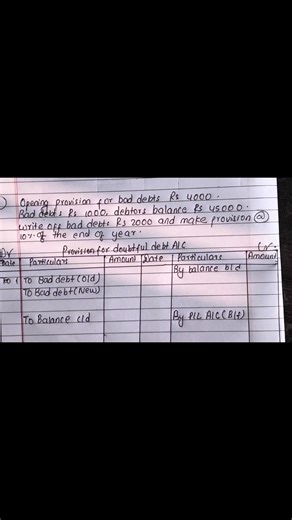 Opening provision for bad debts Rs 4000.
Bad debts Rs 1000, debtors balance Rs 45000.
write off bad debts Rs 2000 and make provision @
10% of the end of year.
Dr Provision for doubtful debt A/C Cr.
Date Particulars Amount Date Particulars Amount
To Bad debt (Old) By balance b/d
To Bad debt (New)
To Balance c/d By P/L A/C (B/f)